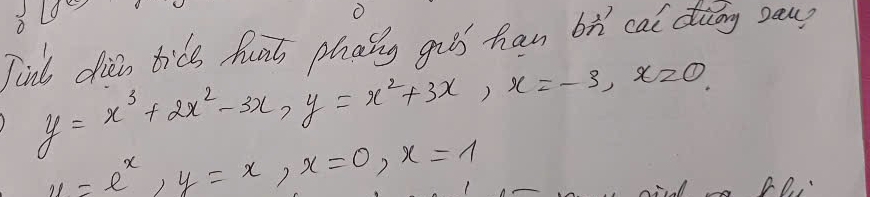 Tính diện tích hình phẳng giới hạn bởi các đường sau?
y = x³ + 2x² - 3x, y = x² + 3x, x = -3, x = 0.
y = eˣ, y = x, x = 0, x = 1